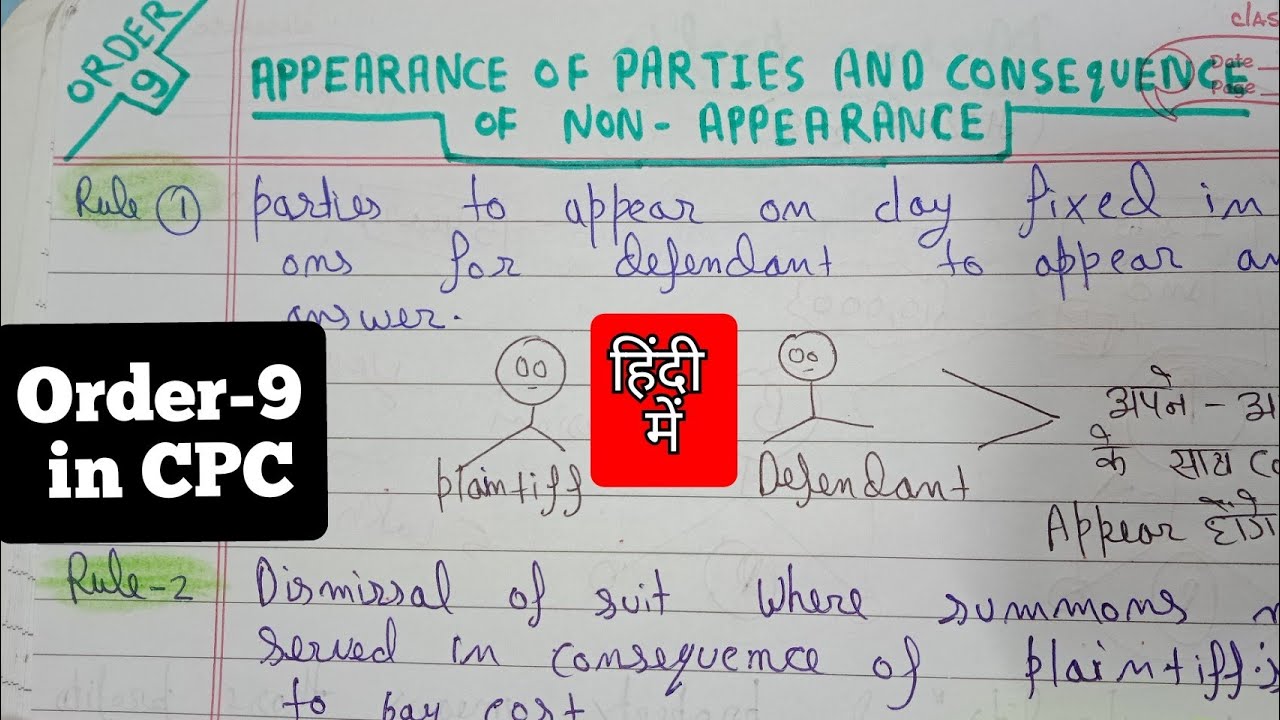 ORDER
9
CLAS
Date
Page
APPEARANCE OF PARTIES AND CONSEQUENCE
OF NON- APPEARANCE
Rule 1 parties to appear on day fixed in
ons for defendant to appear an
answer.
Order-9
in CPC
हिंदी
में
plaintiff
Defendant
अपने - अ
के साथ Co
Appear होंगे
Rule-2 Dismissal of suit where summons n
served in consequence of plaintiff's
to pay cost